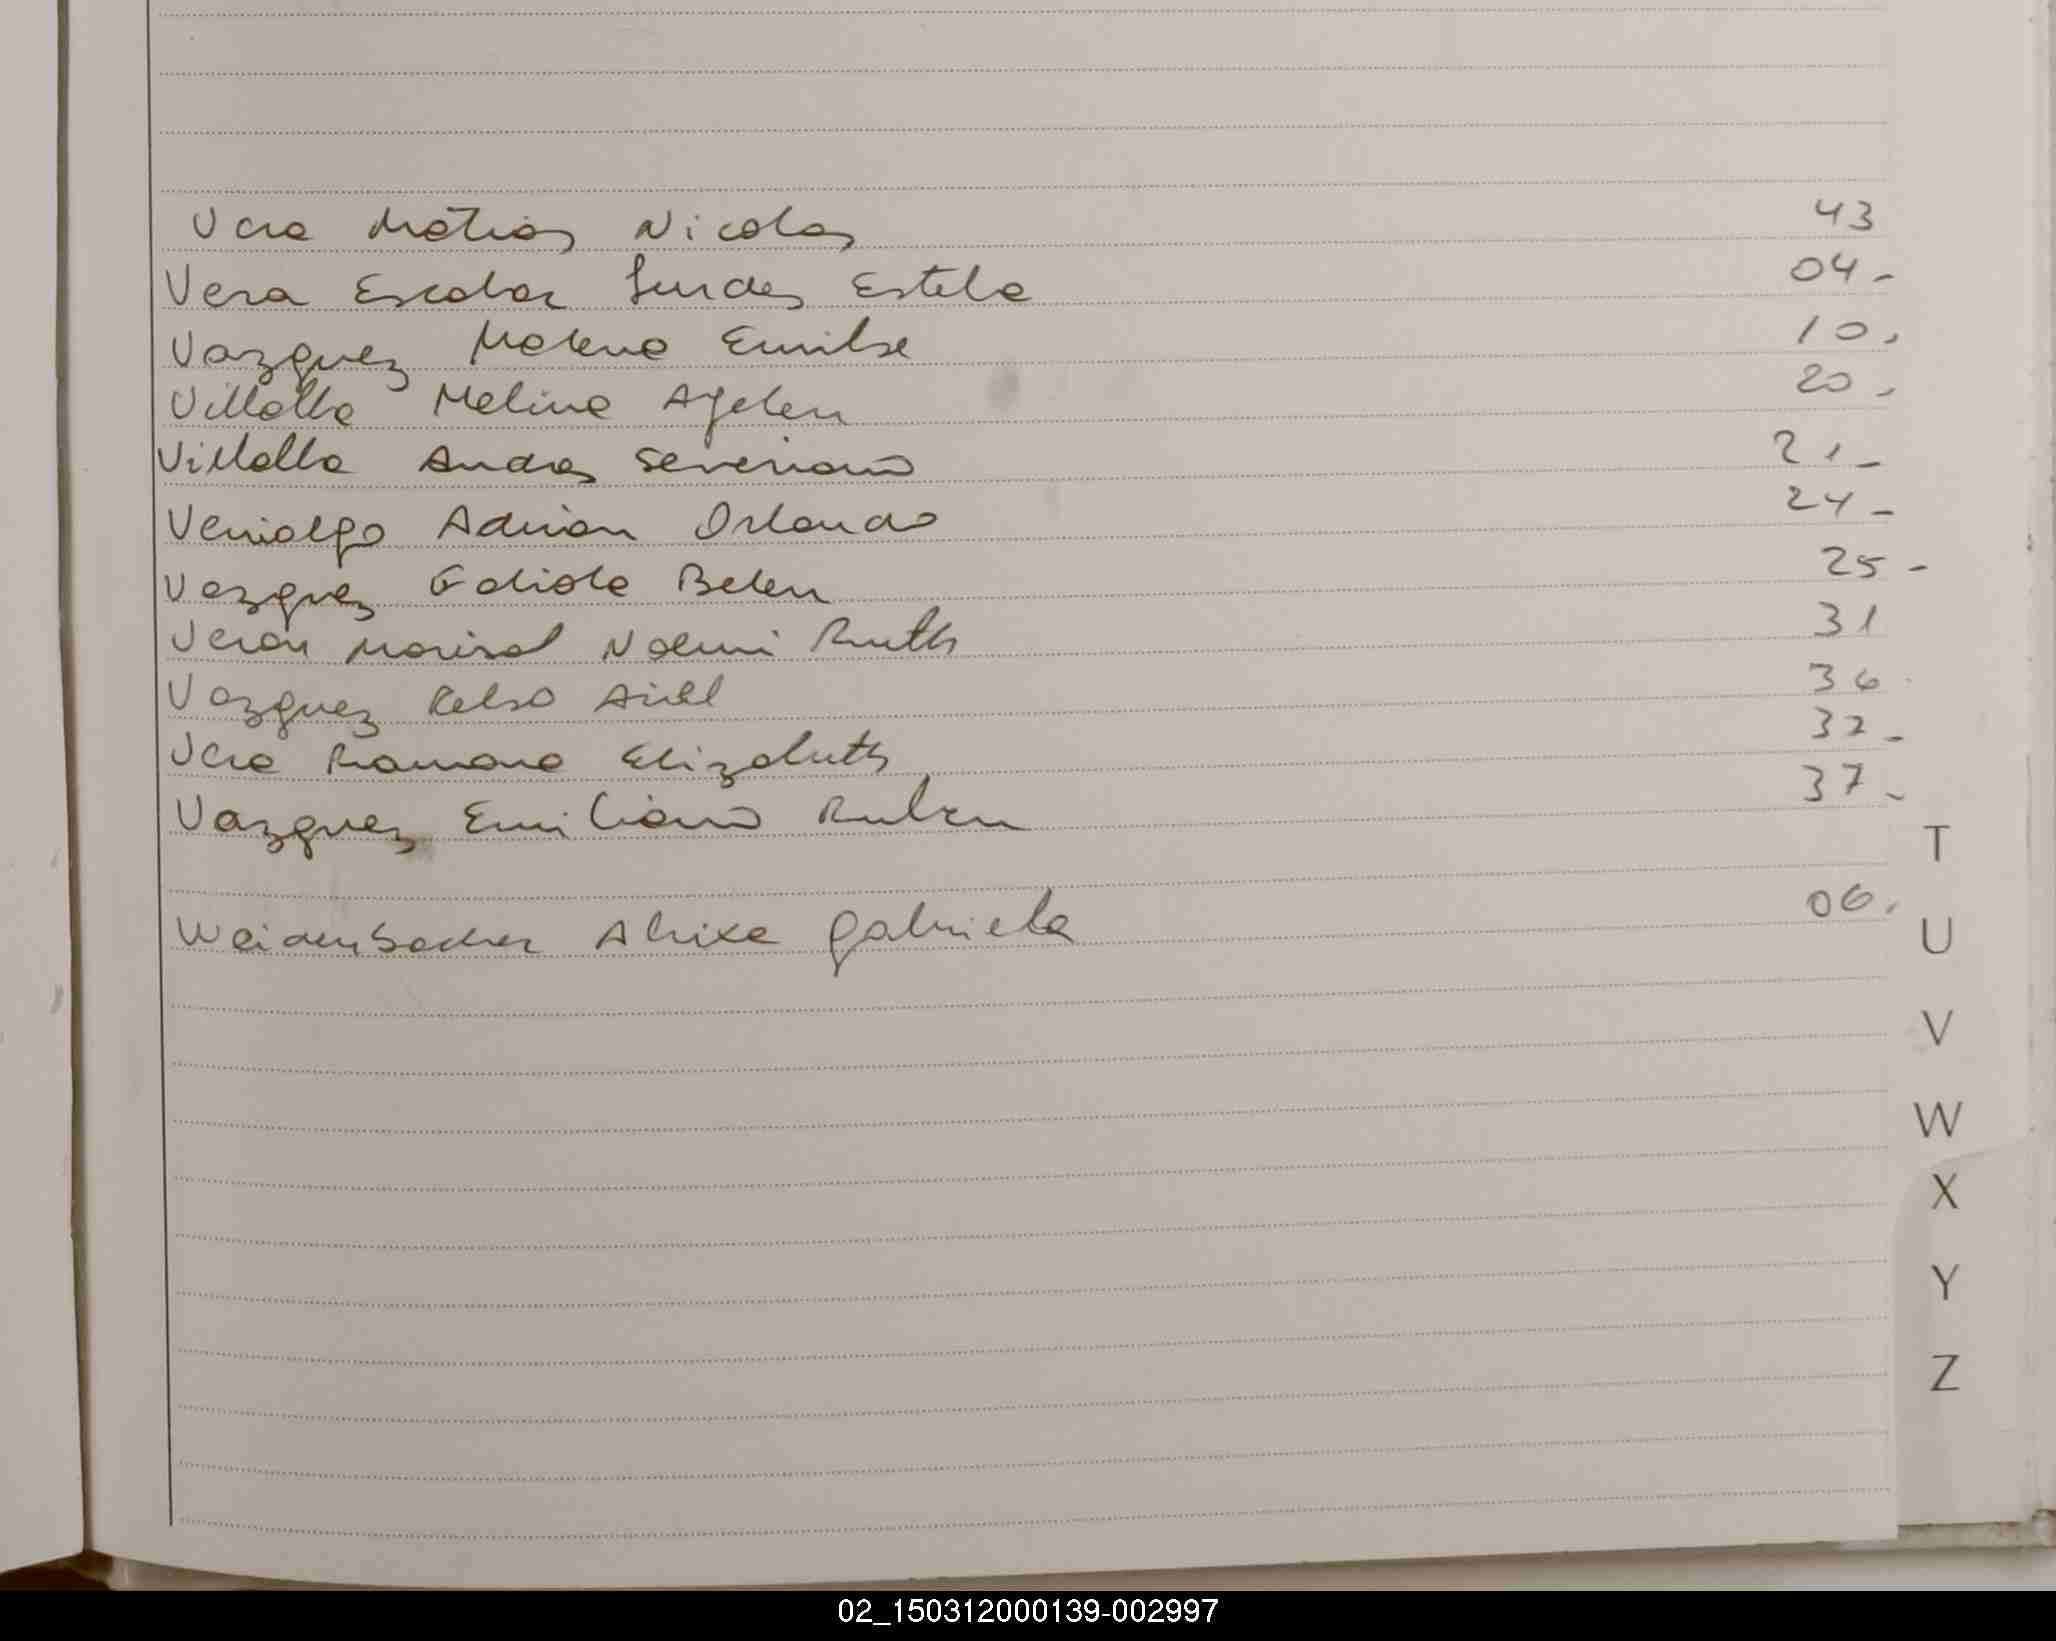 Vera Matias Nicolas 43
Vera Escobar Lurdes Estela 04-
Vazquez Melena Emilse 10.
Villalba Melina Ayelen 20-
Villalba Severiano 21-
Venialgo Adrian Orlando 24-
Vazquez Fabiola Belen 25-
Veron Marisol Noemi Ruth 31
Vazquez Celso Ariel 36
Vera Romana Elizabeth 32-
Vazquez Emiliano Ruben 37-
T
Weidenbacher Gabriela 06.
U
V
W
X
Y
Z
02_150312000139-002997